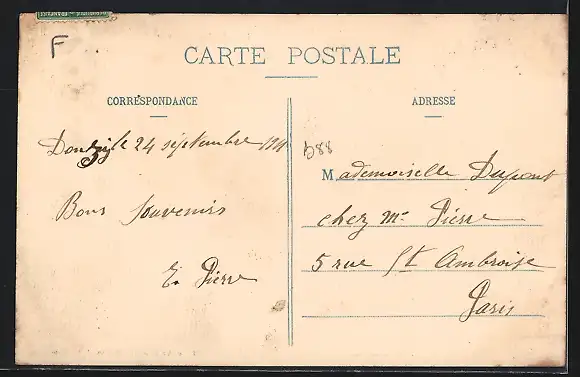 F
CARTE POSTALE
CORRESPONDANCE
ADRESSE
Donzy le 24 septembre
b88
Mademoiselle Dupont
Bons Souvenirs
chez Mr Pierre
E. Pierre
5 rue St Ambroise
Paris